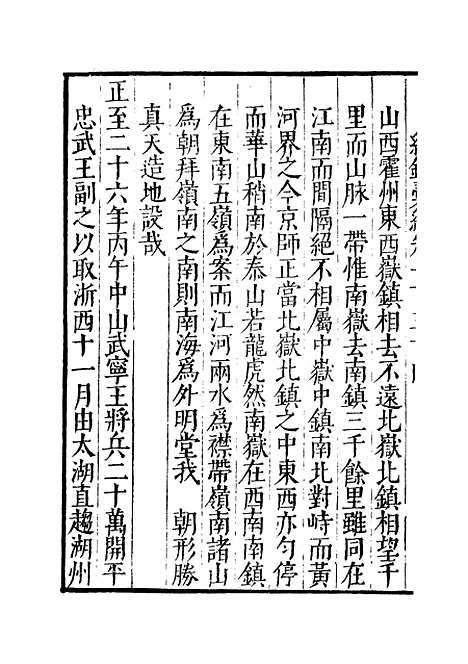 山西霍州東西嶽鎮相去不遠北嶽北鎮相望千
里而山脉一帶惟南嶽去南鎮三千餘里雖同在
江南而間隔絕不相屬中嶽中鎮南北對峙而黃
河界之今京師正當北嶽北鎮之中東西亦勻停
而華山稍南於泰山若龍虎然南嶽在西南南鎮
在東南五嶺爲案而江河兩水爲襟帶嶺南諸山
爲朝拜嶺南之南則南海爲外明堂我 朝形勝
真天造地設哉
正至二十六年丙午中山武寧王將兵二十萬開平
忠武王副之以取浙西十一月由太湖直趨湖州